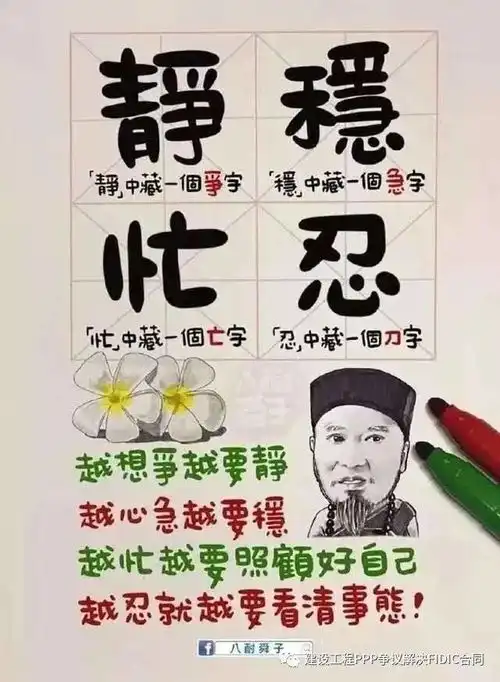 靜
穩
「靜」中藏一個爭字
「穩」中藏一個急字
忙
忍
「忙」中藏一個亡字
「忍」中藏一個刀字
越想爭越要靜
越心急越要穩
越忙越要照顧好自己
越忍就越要看清事態！
八耐舜子
建设工程PPP争议解决FIDIC合同